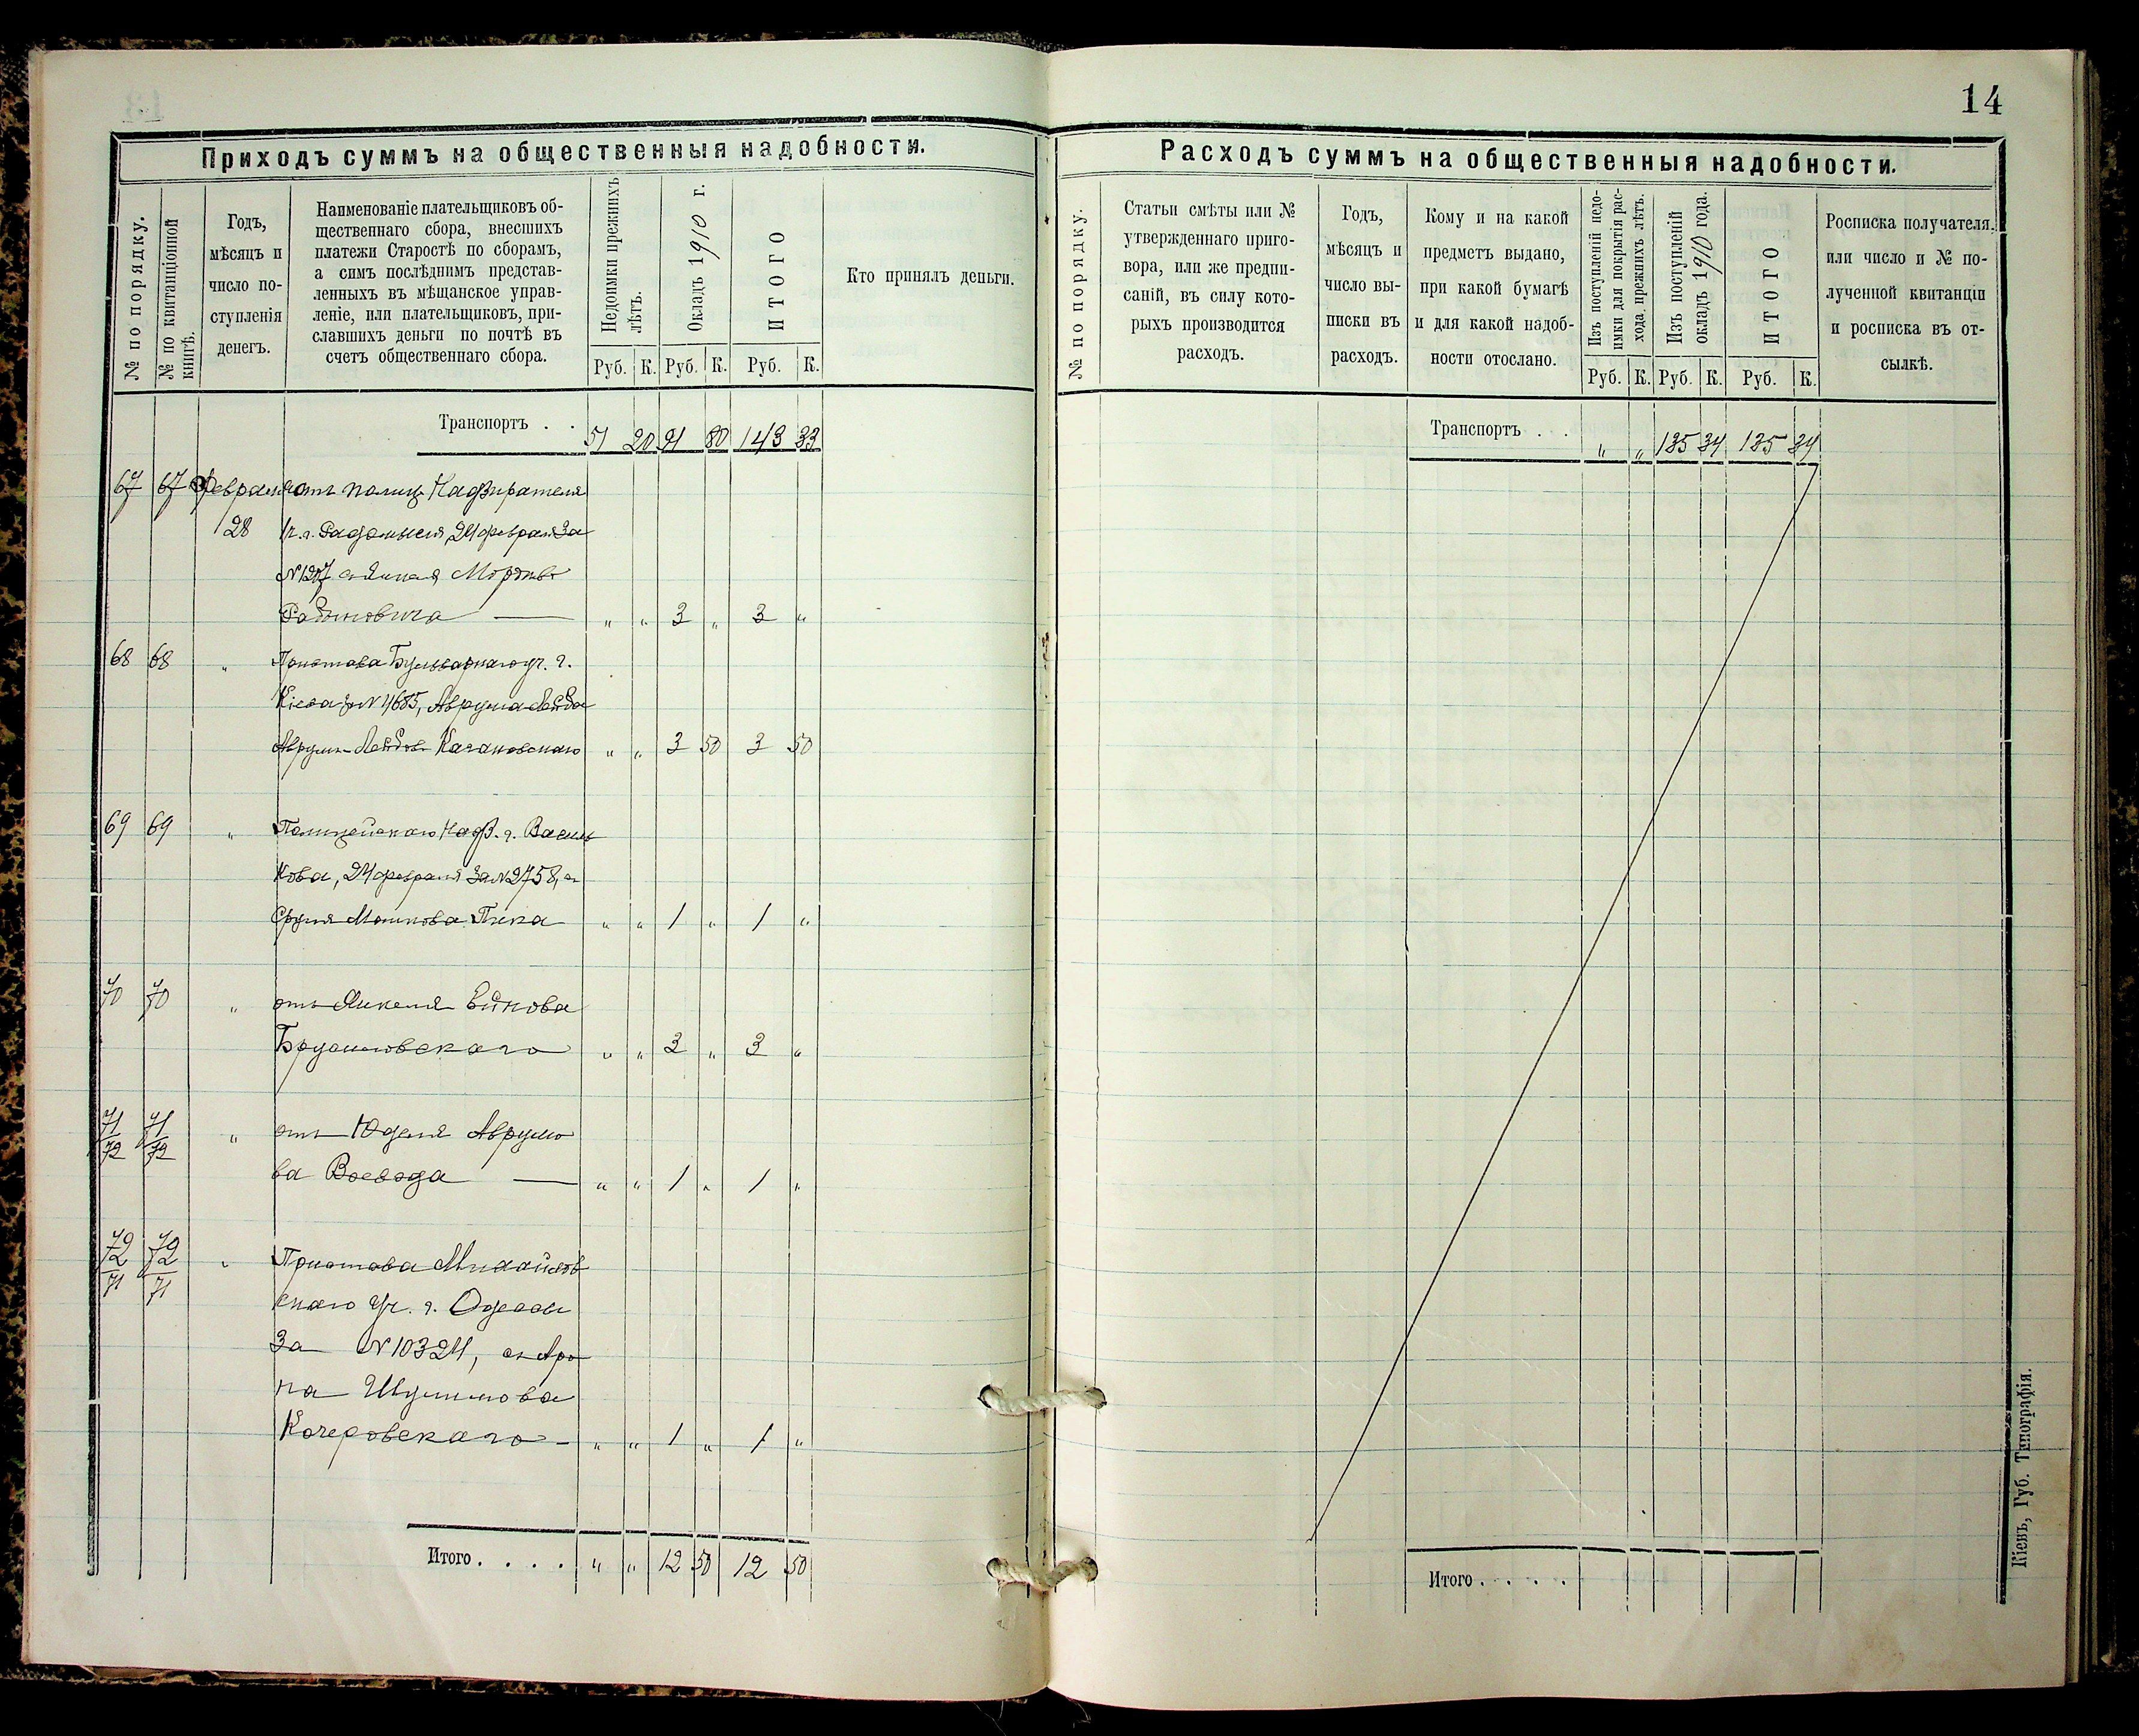 14
Приходъ суммъ на общественныя надобности.
№ по порядку.
№ по квитанціонной книгѣ.
Годъ,
мѣсяцъ и
число по-
ступленія
денегъ.
Наименованіе плательщиковъ об-
щественнаго сбора, внесшихъ
платежи Старостѣ по сборамъ,
а симъ послѣднимъ представ-
ленныхъ въ мѣщанское управ-
леніе, или плательщиковъ, при-
славшихъ деньги по почтѣ въ
счетъ общественнаго сбора.
Недоимки прежнихъ
лѣтъ.
Окладъ 1910 г.
ИТОГО
Руб. К. Руб. К. Руб. К.
Кто принялъ деньги.
Транспортъ . . 51 20 91 80 143 33
67 67 Февраля отъ полиц Надзирателя
28 1 ч. г. Радомысля, 24 февраля За
N 1217 съ Мордков
Рабиновича — " " 3 " 3 "
68 68 " Пристава Бульварнаго уч. г.
Кіева за N 4685, Аврума Лейба
Аврумъ-Лейбов Качановскаго " " 3 50 3 50
69 69 " Полицейскаго Надз. г. Василь
кова, 24 февраля За N 2758, съ
Сруля Мошкова Пика " " 1 " 1 "
70 70 " отъ Янкеля
Брусиловскаго " " 3 " 3 "
71 71 " отъ Юделя Аврумо
72 72
ва Воевода — " " 1 " 1 "
72 72 " Пристава Михайлов
71 71
скаго уч. г. Одессы
За N 10324, съ Аро
на Шулимова
Кочеровскаго - " " 1 " 1 "
Итого . . . . " " 12 50 12 50
Расходъ суммъ на общественныя надобности.
№ по порядку.
Статьи смѣты или №
утвержденнаго приго-
вора, или же предпи-
саній, въ силу кото-
рыхъ производится
расходъ.
Годъ,
мѣсяцъ и
число вы-
писки въ
расходъ.
Кому и на какой
предметъ выдано,
при какой бумагѣ
и для какой надоб-
ности отослано.
Изъ поступленій недо-
имки для покрытія рас-
хода прежнихъ лѣтъ.
Изъ поступленій
окладъ 1910 года.
ИТОГО
Руб. К. Руб. К. Руб. К.
Росписка получателя,
или число и № по-
лученной квитанціи
и росписка въ от-
сылкѣ.
Транспортъ . . " " 135 34 135 34
Итого . . . . .
Кіевъ, Губ. Типографія.